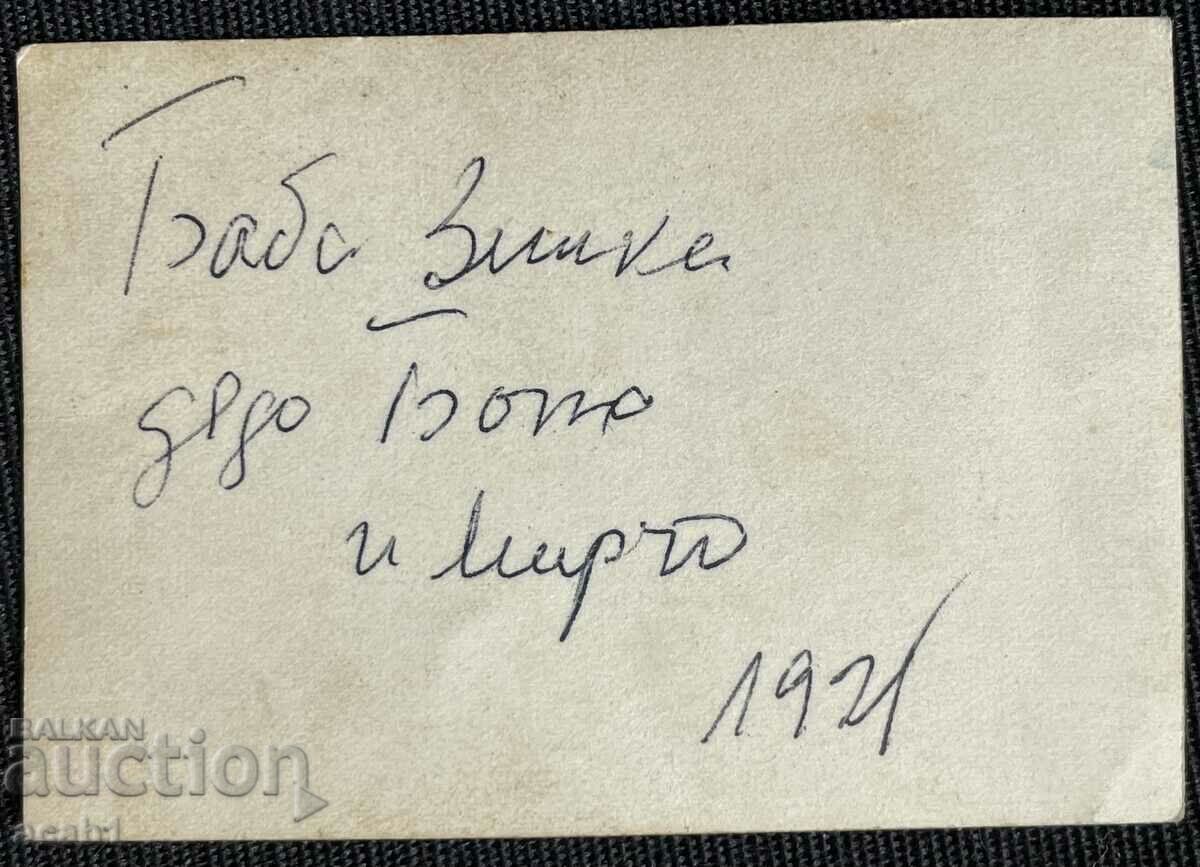 Баба Зинка
дядо Бото
и Мирчо
1921
BALKAN
auction
acab1